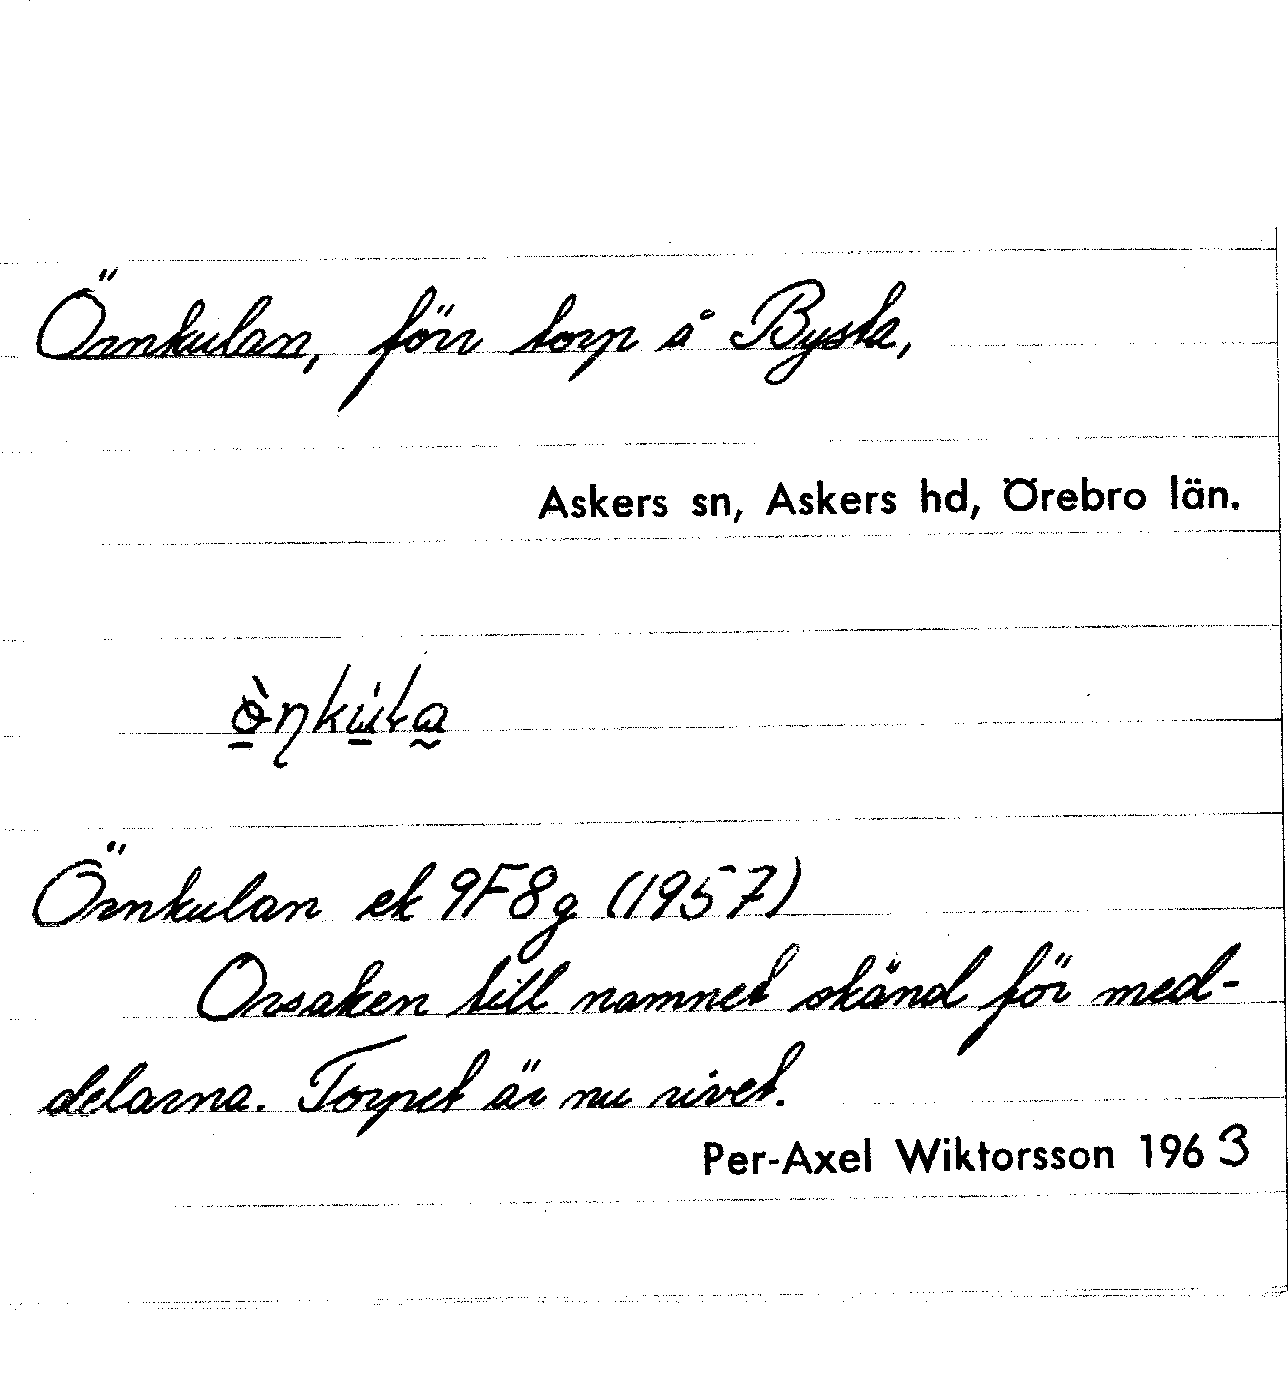 Örnkulan, förr torp å Bysta,
Askers sn, Askers hd, Örebro län.
Örnkulan ek 9F8g (1957)
Orsaken till namnet okänd för med-
delarna. Torpet är nu rivet.
Per-Axel Wiktorsson 1963